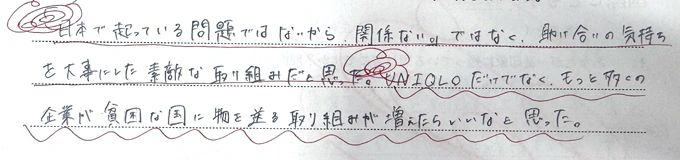 日本で起っている問題ではないから、関係ない。ではなく、助け合いの気持ち
を大事にした素敵な取り組みだと思った。UNIQLOだけでなく、もっと多くの
企業が貧困な国に物を送る取り組みが増えたらいいなと思った。